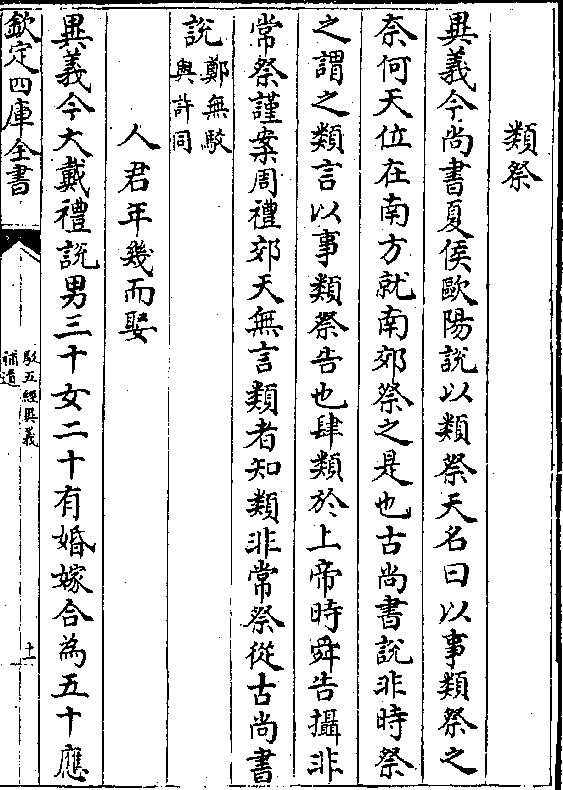 類祭
異義今尚書夏侯歐陽說以類祭天名曰以事類祭之
奈何天位在南方就南郊祭之是也古尚書說非時祭
之謂之類言以事類祭告也肆類於上帝時舜告攝非
常祭謹案周禮郊天無言類者知類非常祭從古尚書
說鄭無駁與許同
人君年幾而娶
異義今大戴禮說男三十女二十有婚嫁合為五十應
欽定四庫全書
駁五經異義補遺
十一